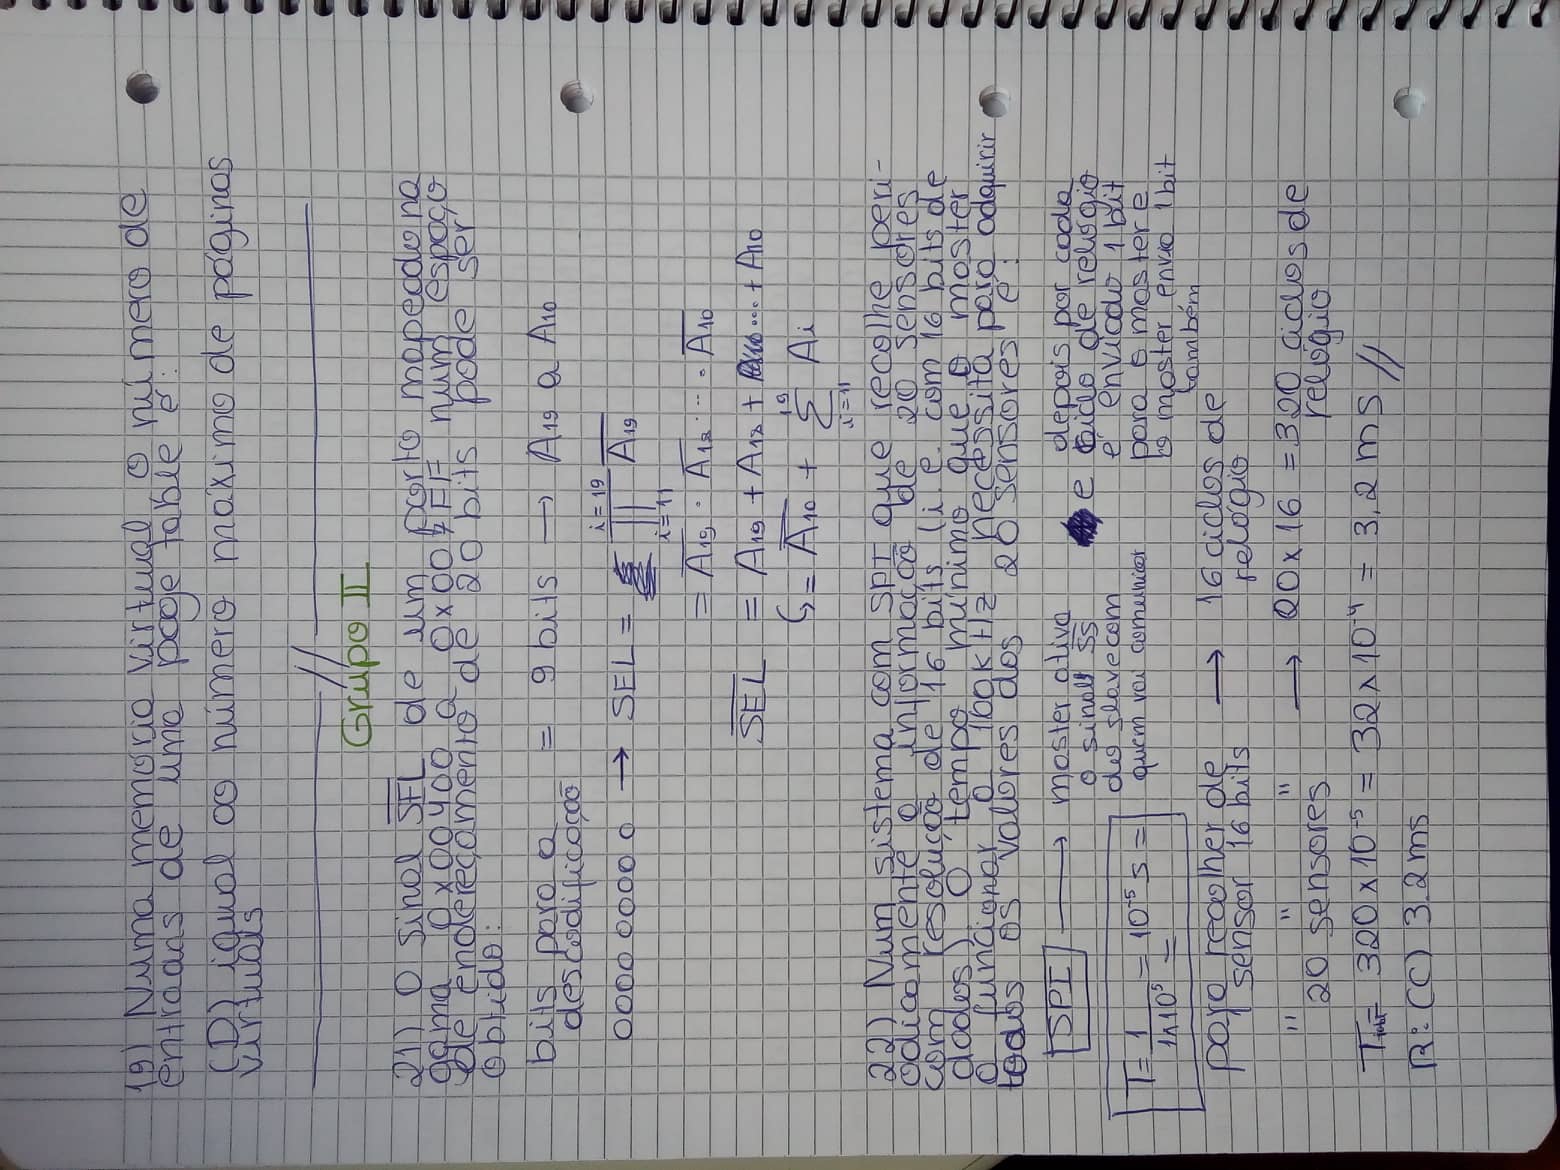 19) Numa memória virtual, o número de
entradas de uma page table é:
(D) igual ao número máximo de páginas
virtuais
//
Grupo II
21) O sinal \overline{SEL} de um porto mapeado na
gama 0x00400 a 0x007FF num espaço
de endereçamento de 20 bits pode ser
obtido:
bits para a = 9 bits → A19 a A10
descodificação
000000000 → SEL = ∏ \overline{A19}
i=19
i=11
= \overline{A19} · \overline{A18} ... · \overline{A10}
\overline{SEL} = A19 + A18 + ... + A10
↳ = \overline{A10} + Σ Ai
19
i=11
22) Num sistema com SPI que recolhe peri-
odicamente a informação de 20 sensores
com resolução de 16 bits (i.e. com 16 bits de
dados) o tempo mínimo que o master
a funcionar a 100kHz necessita para adquirir
todos os valores dos 20 sensores é:
SPI → master ativa
o sinal \overline{SS}
do slave com
quem vai comunicar
e depois por cada
ciclo de relógio
é enviado 1 bit
para o master e
o master envia 1 bit
também
T = 1/1x10⁵ = 10⁻⁵ s =
=
para recolher de → 16 ciclos de
1 sensor 16 bits relógio
" " " → 20 x 16 = 320 ciclos de
20 sensores relógio
Ttotal = 320 x 10⁻⁵ = 32 x 10⁻⁴ = 3.2 ms //
R: (C) 3.2 ms